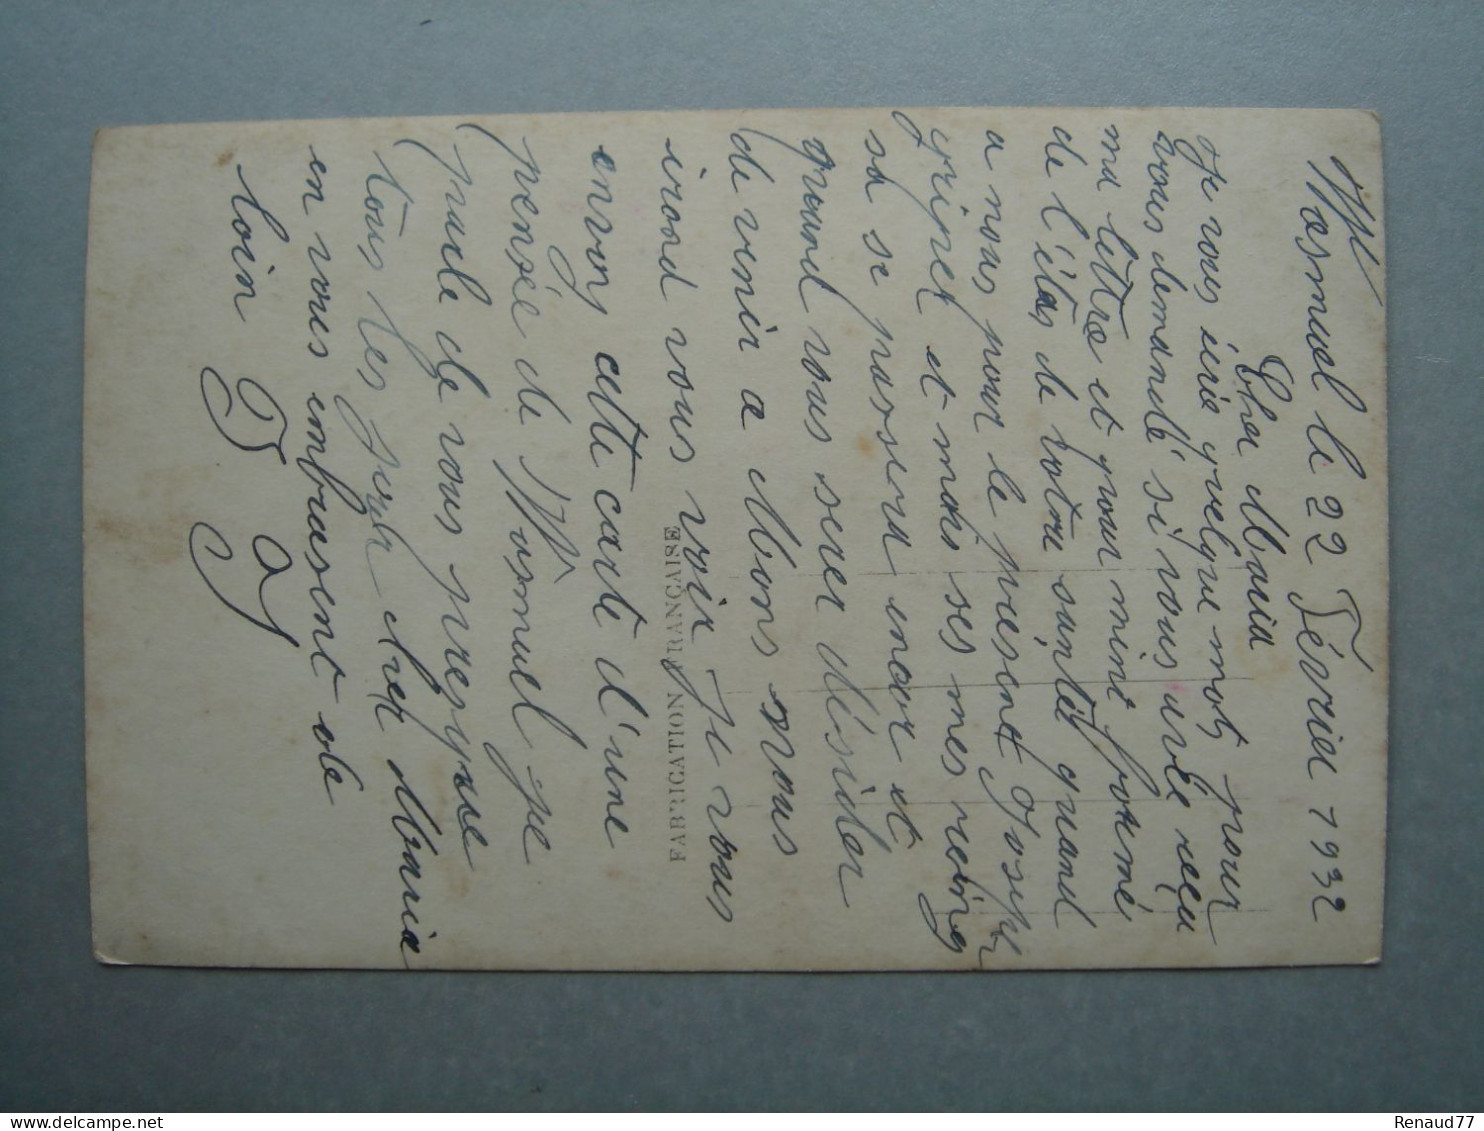 Wasmuel le 22 Février 1932
Cher Maria
Je vous écrie quelque mots pour
vous demandé si vous avée reçu
ma lettre et pour mint formé
de l'étas de votre santée quand
a nous pour le présent Joseph
gripet et mois ses mes reins
sa se passera encor et
quand vous serer désider
de venir a Mons nous
irond vous voir Je vous
envoy cette carte d'une
pensée de Wasmuel je
parle de vous presque
tous les jour cher Maria
en vous embrasent de
loin
FABRICATION FRANÇAISE
Renaud77